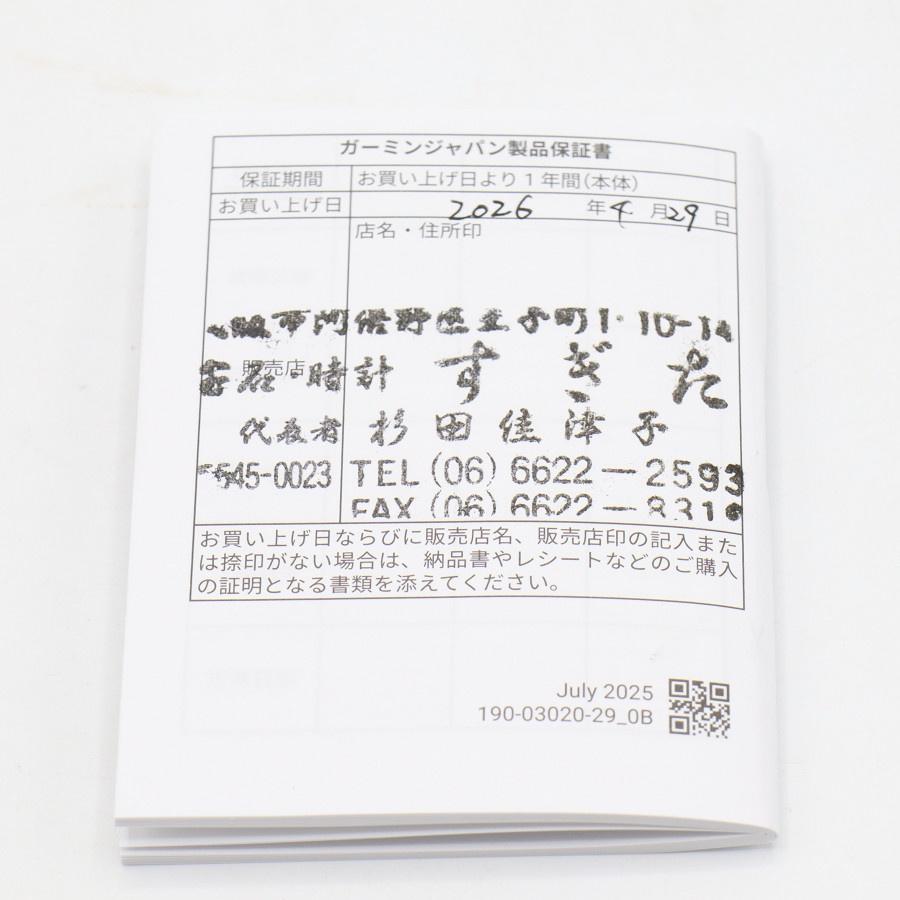 ガーミンジャパン製品保証書
保証期間 お買い上げ日より1年間(本体)
お買い上げ日 2026 年 4 月 29 日
店名・住所印
阪市阿倍野区王子町1-10-1
販売店
時計 すぎた
代表者 杉田佳津子
545-0023 TEL (06) 6622-2593
FAX (06) 6622-831
お買い上げ日ならびに販売店名、販売店印の記入また
は捺印がない場合は、納品書やレシートなどのご購入
の証明となる書類を添えてください。
July 2025
190-03020-29_0B